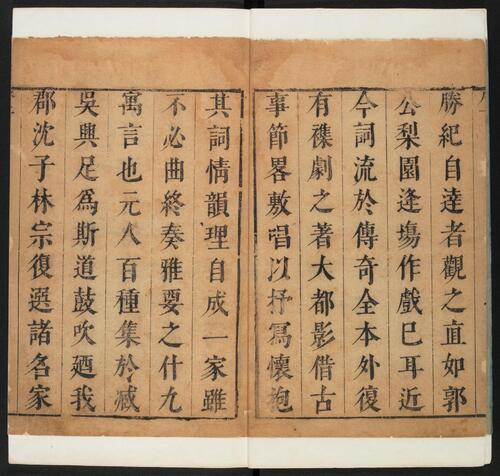 勝紀自達者觀之直如郭
公梨園逢塲作戲已耳近
今詞流於傳奇全本外復
有襍劇之著大都影借古
事節畧敷唱以抒寫懷抱
其詞情韻理自成一家雖
不必曲終奏雅要之什九
寓言也元人百種集於臧
吳興足爲斯道鼓吹廼我
郡沈子林宗復選諸名家